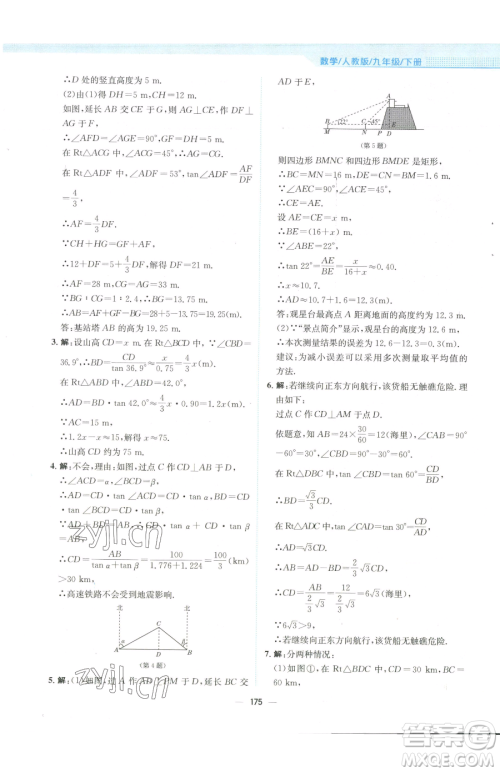 数学/人教版/九年级/下册
∴D 处的竖直高度为 5 m.
(2)由(1)得 DH=5 m,
如图,延长 AB 交 CE 于 G,过点 D 作 DF⊥
AG 于 F,
∴∠AFD=∠AGE=90°,
在 Rt△ADF 中,∠ADF=53°,tan53°=AF/DF
=4/3,
∴AF=4/3 DF.
又∵CH+HG=CG,
∴12+DF=5+4/3 DF,∴DF=21 m,
∴AF=28 m,CG=33 m,
又∵BG∶CG=1∶2.4,∴BG=13.75 m.
∴AB=AF+5-BG=28+5-13.75=19.25(m).
答:基站塔 AB 的高为 19.25 m.
3. 解:设山高 CD=x m,在 Rt△BCD 中,∠CBD=
36.9°,∴BD=CD/tan 36.9°≈x/0.75=4/3 x(m).
在 Rt△ABD 中,∠ABD=42°,
∴AD=BD·tan 42°≈4/3 x×0.9=1.2x(m).
∵AC=15 m,
∴1.2x-x=15,解得 x=75.
∴山高 CD 为 75 m.
4. 解:不会,理由:如图,过点 C 作 CD⊥AB 于 D,
∴∠ACD=α,∠BCD=β,
∴AD=CD·tan α,BD=CD·tan β.
∵AD+BD=AB,∴AB=CD·tan α+CD·tan β
∴CD=AB/(tan α+tan β)=100/(1.776+1.224)=100/3(km)
>30 km,
∴高速铁路不会受到地震影响.
北
北
C
α
β
A
D
B
(第 4 题)
5. 解:(1)如图,过 A 作 AD⊥PM,延长 BC 交
AD 于 E,
A
22°
45°
B
C
E
M
N
P
D
(第 5 题)
则四边形 BMNC 和四边形 BMDE 是矩形,
∴BC=MN=16 m,DE=BM=1.6 m,
∵∠AEC=90°,∠ACE=45°,
∴CE=AE.
设 AE=CE=x m,
∴BE=(16+x) m.
∵∠ABE=22°,
∴tan 22°=AE/BE=x/(16+x)≈0.40,
∴x≈10.7.
∴AD≈10.7+1.6=12.3(m).
答:观星台最高点 A 距离地面的高度约为 12.3 m.
(2)∵“景点简介”显示,观星台的高度为 12.6 m,
∴本次测量结果的误差为 12.6-12.3=0.3(m).
建议:为减小误差可以多次测量取平均值的
方法.
6. 解:若继续向正东方向航行,该货船无触礁危险.理
由如下:
过点 C 作 CD⊥AM 于点 D,
依题意,知 AB=24×30/60=12(海里),∠CAB=90°
-60°=30°,∠CBD=90°-30°=60°,
在 Rt△DBC 中,tan∠CBD=tan 60°=CD/BD
∴BD=√3/3 CD.
在 Rt△ADC 中,tan∠CAD=tan 30°=CD/AD
∴AD=√3CD.
∵AB=AD-BD=√3CD-√3/3CD=2/3√3CD,
∴CD=AB/(2/3√3)=12/(2/3√3)=6√3(海里).
∵6√3>9,
∴若继续向正东方向航行,该货船无触礁危险.
7. 解:分两种情况:
(1)如图①,在 Rt△BDC 中,CD=30 km,BC=
60 km,
175
zyjl.cn
zyjl.cn
答案圈
MXQE.COM